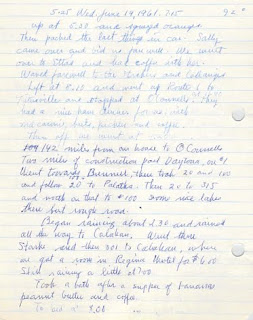 5:25 Wed. June 14, 1961. 7:15 92°
up at 5:25 and
Then packed the last things in car. Sally
came over and bid us farewell. We went
over to Ettas and had coffee with her.
Waved farewell to the and
Left at 8:10 and went up Route 1 to
and stopped at O'Connells. They
had a nice dinner for us, with
and coffee.
Then off we went at
142 miles from our home to O'Connells
Two miles of construction past Daytona, on #1
then took 20 and 100
and follow 20 to Palatka. Then 20 to 315
and north on that to #100. Some nice lakes
there but rough road.
Began raining about 2:30 and rained
all the way to Callahan. Went thru
Starke and then 301 to Callahan, where
we got a room in Regina Hotel for $6.00
Still raining a little at 7:00.
Took a bath after a supper of bananas
peanut butter and coffee.
To bed at 9:00